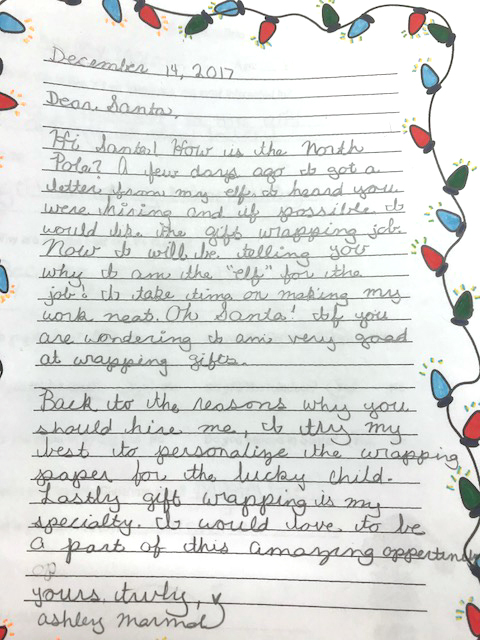 December 14, 2017
Dear Santa,
Hi Santa! How is the North
Pole? A few days ago I got a
letter from my elf. I heard you
were hiring and if possible I
would like the gift wrapping job.
Now I will be telling you
why I am the "elf" for the
job! I take time on making my
work neat. Oh Santa! If you
are wondering I am very good
at wrapping gifts.
Back to the reasons why you
should hire me, I try my
best to personalize the wrapping
paper for the lucky child.
Lastly gift wrapping is my
specialty. I would love to be
a part of this amazing
yours truly,
ashley marmol